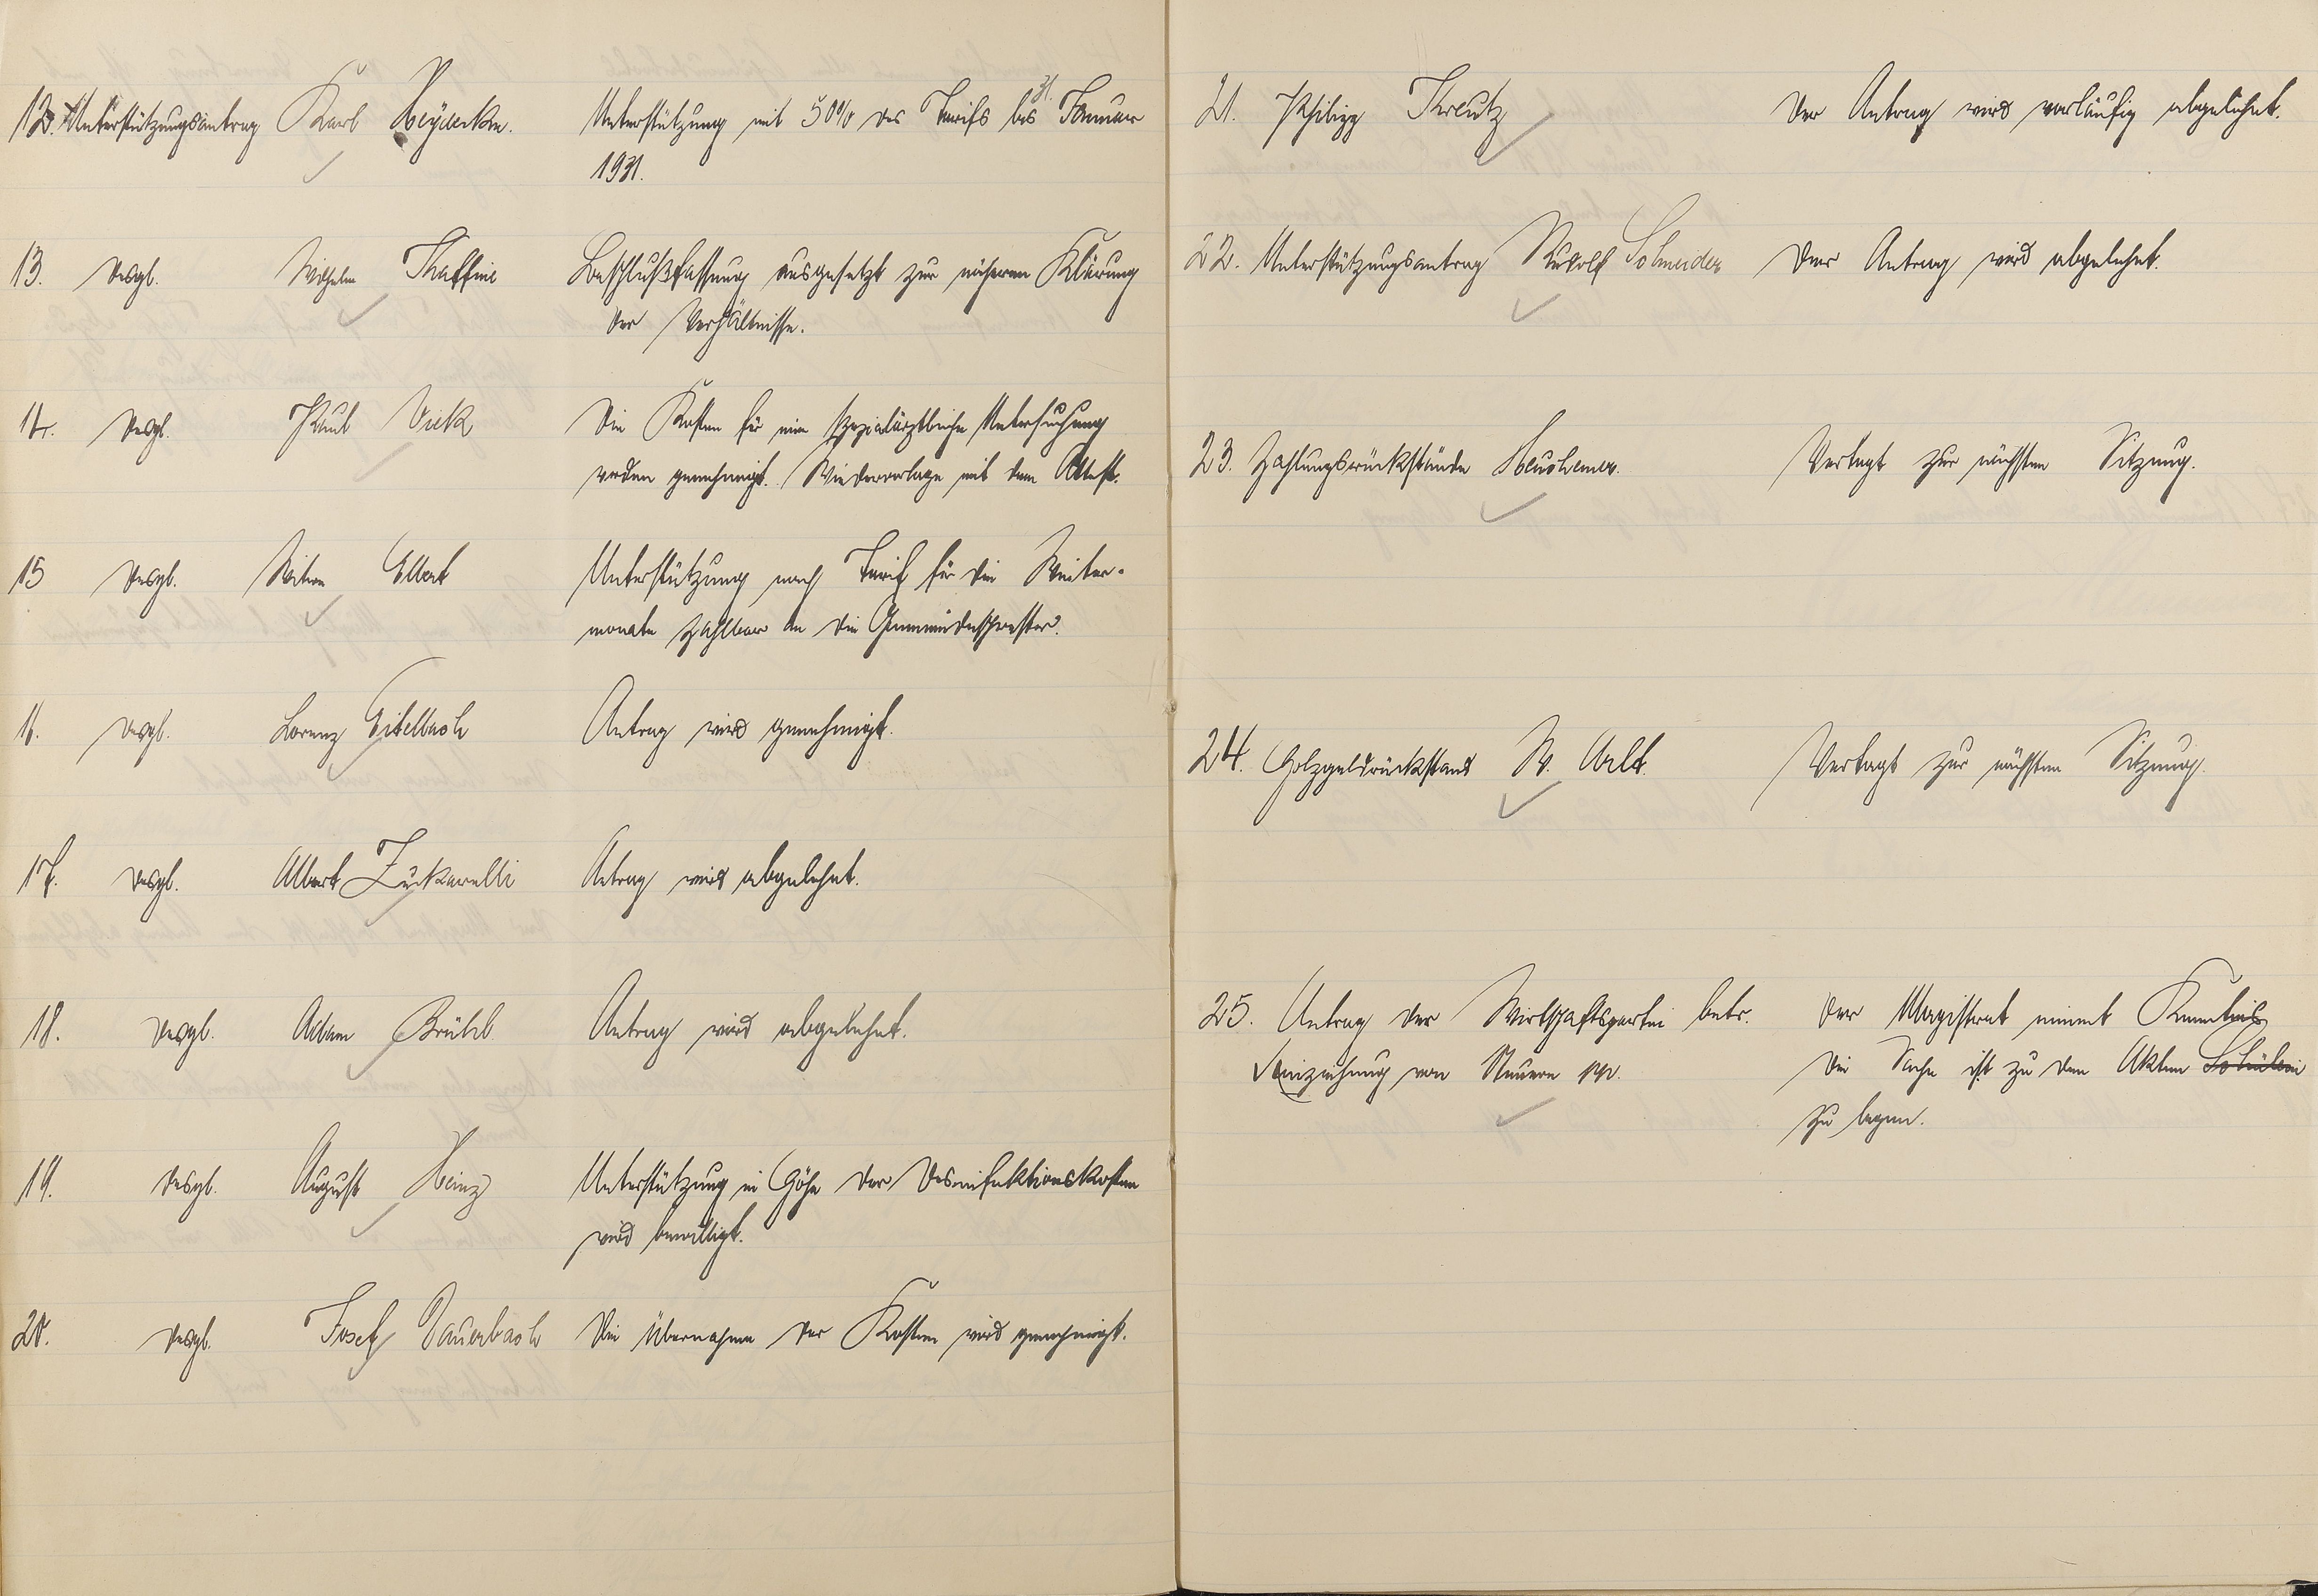 12. Unterstützungsantrag Karl Heÿderken. Unterstützung mit 50% des Tarifs bis 31. Januar
1931.
13. Desgl. Wilhelm Beschlußfassung ausgesetzt zur näheren Klärung
der Verhältnisse.
14. Desgl. Paul Vick Die Kosten für eine spezialärztliche Untersuchung
werden genehmigt. Wiedervorlage mit dem Attest.
15 Desgl. Witwe Ellert Unterstützung nach Tarif für die Winter-
monate zahlbar an die Gemeindeschwester.
16. Desgl. Lorenz Eitelbach Antrag wird genehmigt.
17. Desgl. Albert Zuckarelli Antrag wird abgelehnt.
18. Desgl. Adam Brühl Antrag wird abgelehnt.
19. Desgl. August Heinz Unterstützung in Höhe der Desinfektionskosten
wird bewilligt.
20. Desgl. Josef Dauerbach Die Übernahme der Kosten wird genehmigt.
21. Philipp Kreutz Der Antrag wird vorläufig abgelehnt.
22. Unterstützungsantrag Rudolf Schneider Der Antrag wird abgelehnt.
23. Zahlungsrückstände Heuchemer. Vertagt zur nächsten Sitzung.
24. Holzgeldrückstand W. Arlt. Vertagt zur nächsten Sitzung.
25. Antrag der Wirtschaftspartei betr. Der Magistrat nimmt Kenntnis
Einziehung von Steuern pp. Die Sache ist zu den Akten
zu legen.